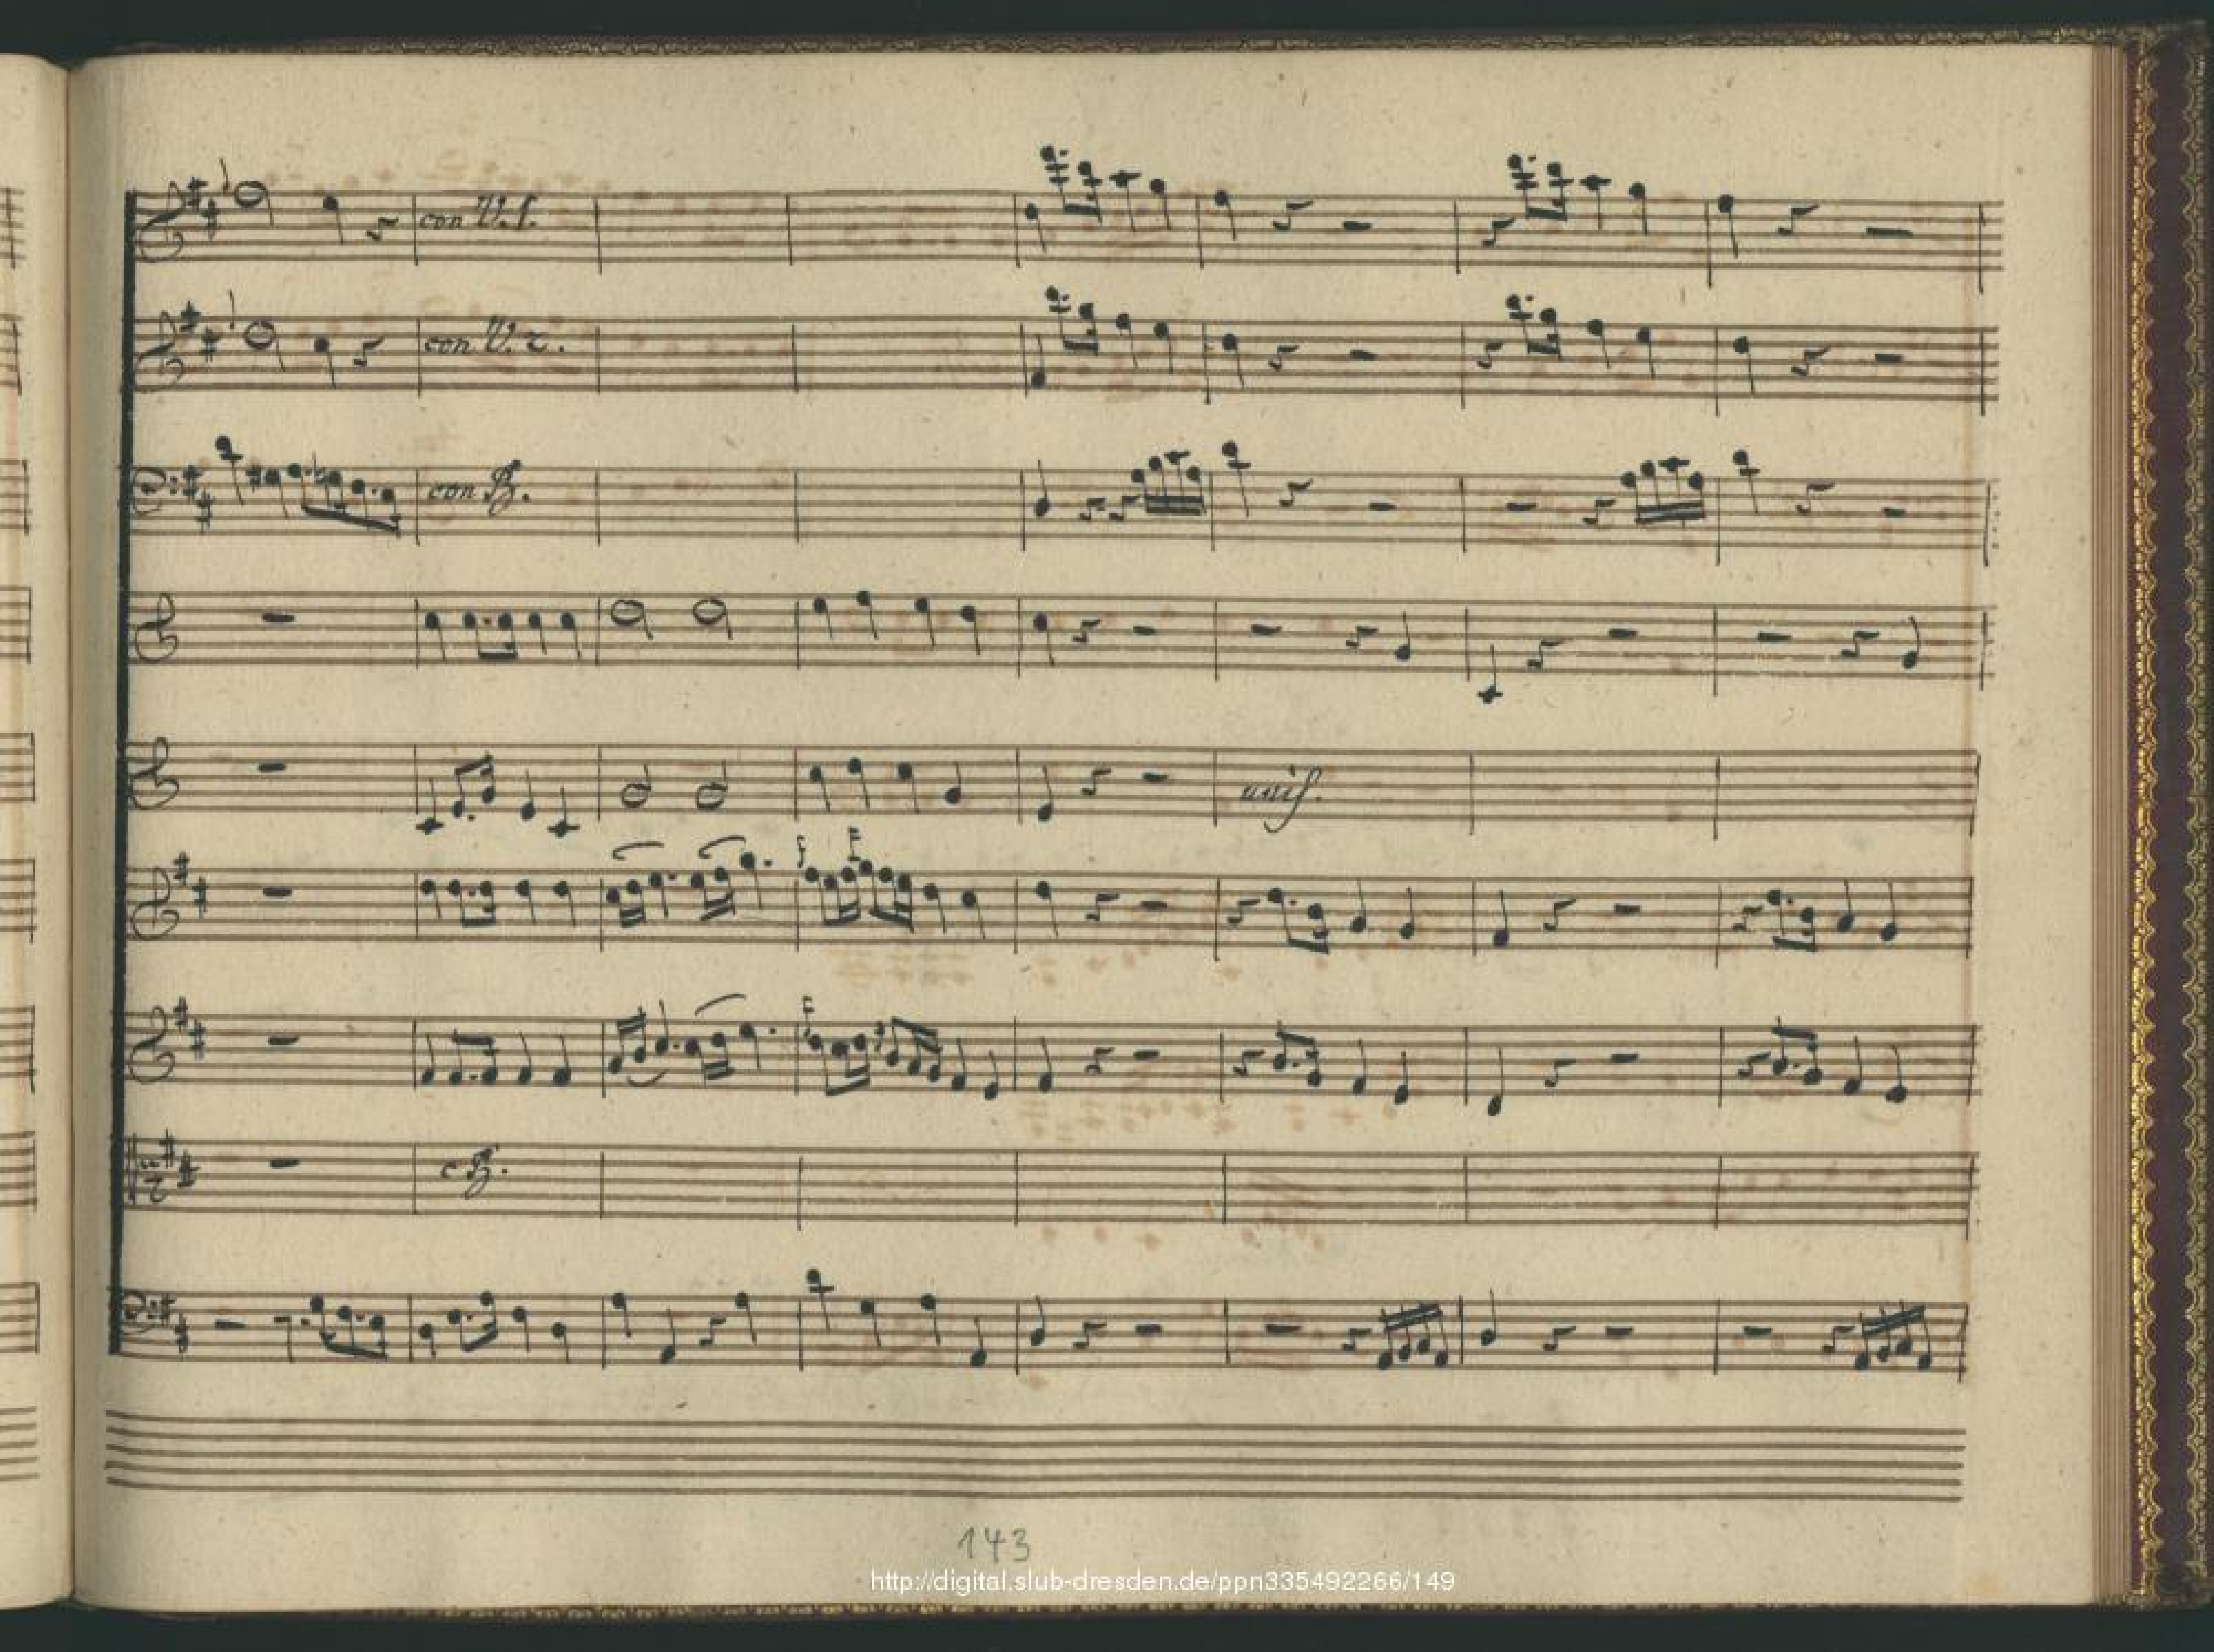 con V. 1.
con V. 2.
con B.
unis.
c B.
143
http://digital.slub-dresden.de/ppn335492266/149